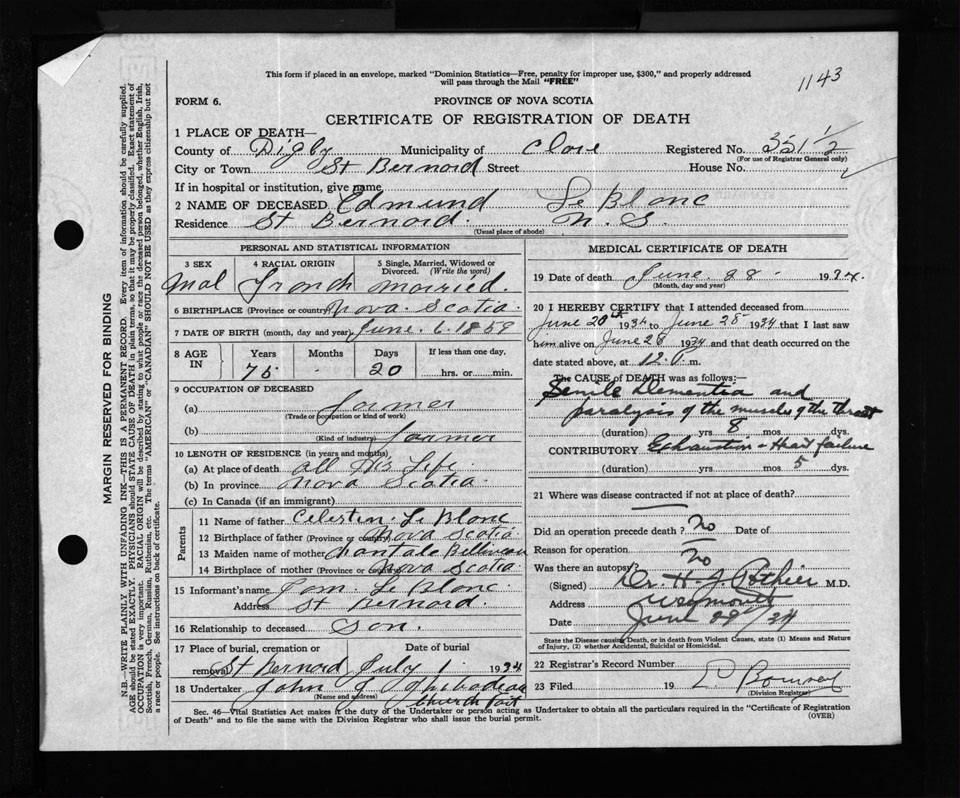 This form if placed in an envelope, marked "Dominion Statistics—Free, penalty for improper use, $300," and properly addressed
will pass through the Mail "FREE"
1143
FORM 6.
PROVINCE OF NOVA SCOTIA
CERTIFICATE OF REGISTRATION OF DEATH
1 PLACE OF DEATH—
County of Digby Municipality of Clare Registered No. 351½
(For use of Registrar General only)
City or Town St Bernard Street House No.
If in hospital or institution, give name
2 NAME OF DECEASED Edmund Le Blanc
Residence St Bernard. N. S.
(Usual place of abode)
PERSONAL AND STATISTICAL INFORMATION
3 SEX 4 RACIAL ORIGIN 5 Single, Married, Widowed or
Divorced. (Write the word)
Mal French married.
6 BIRTHPLACE (Province or country) Nova Scotia.
7 DATE OF BIRTH (month, day and year) June. 6. 1859
8 AGE IN Years Months Days If less than one day,
75 . 20 hrs. or min.
9 OCCUPATION OF DECEASED
(a) farmer
(Trade or occupation or kind of work)
(b) farmer
(Kind of industry)
10 LENGTH OF RESIDENCE (in years and months)
(a) At place of death all His Life
(b) In province Nova Scotia.
(c) In Canada (if an immigrant)
Parents
11 Name of father Celestin Le Blanc
12 Birthplace of father (Province or country) Nova Scotia
13 Maiden name of mother
14 Birthplace of mother (Province or country) Nova Scotia
15 Informant's name Tom. Le Blanc.
Address St Bernard.
16 Relationship to deceased Son.
17 Place of burial, cremation or Date of burial
removal St Bernard July 1. 1934
18 Undertaker John
(Name and address)
Church Point
MEDICAL CERTIFICATE OF DEATH
19 Date of death June. 28. 1934.
(Month, day and year)
20 I HEREBY CERTIFY that I attended deceased from
June 20th 1934 to June 28 1934 that I last saw
him alive on June 28 1934 and that death occurred on the
date stated above, at 12.1 m.
The CAUSE of DEATH was as follows:—
Senile Dementia and
paralysis of the muscles of the throat
(duration) yrs 8 mos dys.
CONTRIBUTORY Exhaustion & Heart failure
(duration) yrs mos 5 dys.
21 Where was disease contracted if not at place of death?
Did an operation precede death? No Date of
Reason for operation
Was there an autopsy? No
(Signed) Dr. H. J. Pothier M.D.
Address Weymouth
Date June 29/34
State the Disease causing Death, or in death from Violent Causes, state (1) Means and Nature
of Injury, (2) whether Accidental, Suicidal or Homicidal.
22 Registrar's Record Number
23 Filed 19
(Division Registrar)
Sec. 46—Vital Statistics Act makes it the duty of the Undertaker or person acting as Undertaker to obtain all the particulars required in the "Certificate of Registration
of Death" and to file the same with the Division Registrar who shall issue the burial permit.
(OVER)
MARGIN RESERVED FOR BINDING
N.B.—WRITE PLAINLY WITH UNFADING INK—THIS IS A PERMANENT RECORD. Every item of information should be carefully supplied.
AGE should be stated EXACTLY. PHYSICIANS should STATE CAUSE OF DEATH in plain terms, so that it may be properly classified. Exact statement of
OCCUPATION is very important. RACIAL ORIGIN will be described by stating to what people or race the deceased person belonged, whether English, Irish,
Scottish, French, German, Russian, Ruthenian, etc. The terms "AMERICAN" or "CANADIAN" SHOULD NOT BE USED as they express citizenship but not
a race or people. See instructions on back of certificate.